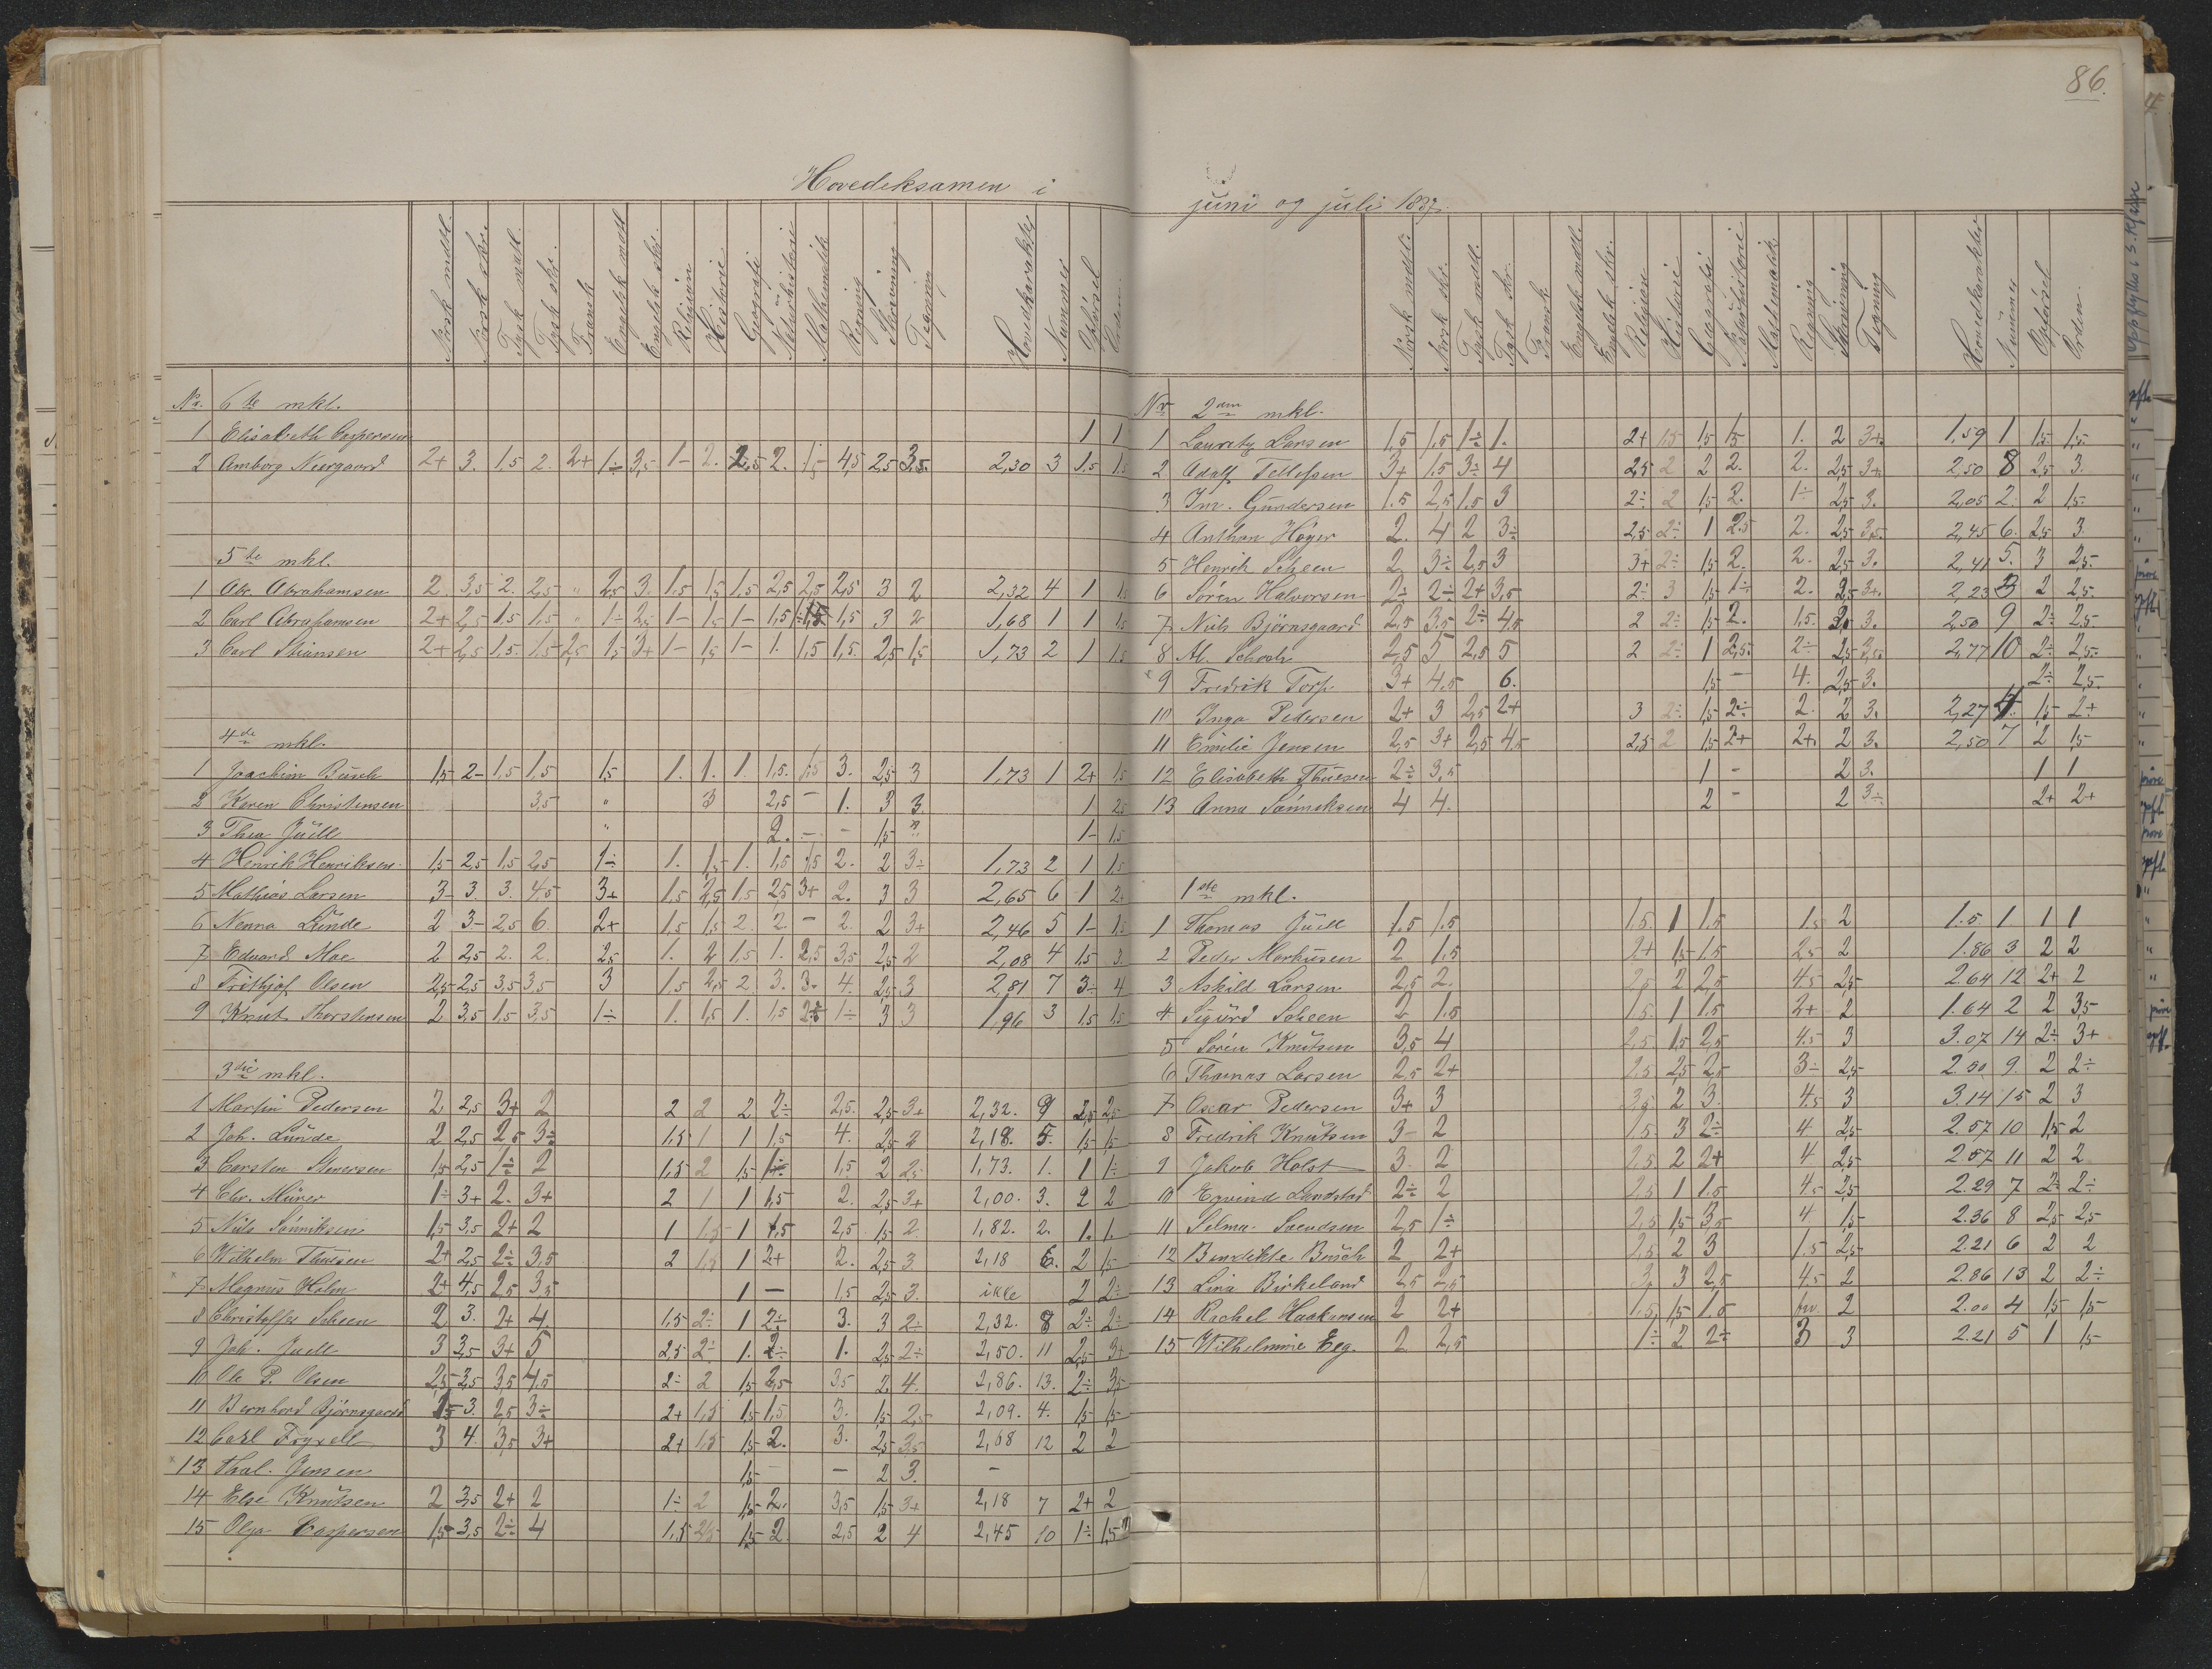 86.
Hovedeksamen i
Norsk mdtl. Norsk skr. Tysk mdtl. Tysk skr. Fransk Engelsk mdtl. Engelsk skr. Religion Historie Geografi Naturhistorie Mathematik Regning Skrivning Tegning Hovedkarakter Nummer Opførsel Orden
Nr. 6te mkl.
1 Elisabeth Caspersen 1 1
2 Amborg Neergaard 2+ 3. 1.5 2. 2+ 1÷ 3,5 1- 2. 2,5 2. 1,5 4,5 2,5 3,5. 2,30 3 1.5 1.5
5te mkl.
1 Abr. Abrahamsen 2. 3,5 2. 2,5 " 2,5 3. 1.5 1,5 1,5 2,5 2,5 2,5 3 2 2,32 4 1 1.5
2 Carl Abrahamsen 2+ 2,5 1.5 1,5 " 1÷ 2,5 1- 1,5 1- 1,5 1,5 1,5 3 2 1,68 1 1 1.5
3 Carl Stiansen 2+ 2,5 1.5. 1.5 2,5 1,5 3+ 1- 1,5 1- 1. 1,5 1,5. 2,5 1,5 1,73 2 1 1.5
4de mkl.
1 Joachim Busch 1,5 2- 1,5 1,5 1,5 1. 1. 1. 1,5. 1,5 3. 2,5 3 1,73 1 2+ 1,5
2 Karen Christensen 3,5 " 3 2,5 - 1. 3 3. 1 2,5
3 Thea Juell " 2. - - 1,5 " 1- 1,5
4 Henrik Henriksen 1,5 2,5 1,5 2,5 1÷ 1. 1,5 1. 1,5 1,5 2. 2 3÷ 1,73 2 1 1.5
5 Mathias Larsen 3- 3. 3. 4,5 3+ 1,5 2,5 1,5 2,5 3+ 2. 3 3 2,65 6 1 2+
6 Nenna Lunde 2 3- 2,5 6. 2+ 1,5 1,5 2. 2. - 2. 2 3+ 2,46 5 1- 1,5
7 Edvard Moe 2 2,5 2. 2. 2,5 1. 2 1,5 1. 2,5 3,5 2,5 2 2,08 4 1.5 3
8 Frithjof Olsen 2,5 2,5 3,5 3,5 3 1,5 2,5 2. 3. 3. 4. 2,5 3 2,81 7 3÷ 4
9 Knut Thorstensen 2 3,5 1,5 3,5 1÷ 1. 1,5 1. 1,5 2÷ 1÷ 3 3 1,96 3 1,5 1,5
3die mkl.
1 Martin Pedersen 2 2,5 3+ 2 2 2 2 2÷ 2,5. 2,5 3+ 2,32. 9 2,5 2,5
2 Joh. Lunde 2 2,5 2,5 3÷ 1,5 1 1 1,5 4. 2,5 2 2,18. 5. 1,5 1,5
3 Carsten Stenersen 1,5 2,5 1÷ 2 1,5 2 1,5 1÷ 1,5 2 2,5 1,73. 1. 1 1÷
4 Chr. Mürer 1÷ 3+ 2. 3+ 2 1 1 1,5 2. 2,5 3+ 2,00. 3. 2 2
5 Nils Sønniksen 1,5 3,5 2+ 2 1 1.5 1 1,5 2,5 1,5 2. 1,82. 2. 1. 1.
6 Wilhelm Thuesen 2+ 2,5 2÷ 3,5 2 1,5 1 2+ 2. 2,5 3 2,18 6. 2 1,5
7 Magnus Holm 2+ 4,5 2,5 3,5 1 - 1,5 2,5 3. ikke 2 2÷
8 Christoffer Scheen 2 3. 2+ 4. 1,5 2÷ 1 2÷ 3. 3 2÷ 2,32. 8 2÷ 2÷
9 Joh. Juell 3 3,5 3+ 5 2,5 2÷ 1. 2÷ 1. 2,5 2÷ 2,50. 11 2,5 3+
10 Ole P. Olsen 2,5 3,5 3,5 4,5 2÷ 2 1,5 2,5 3,5 2. 4. 2,86. 13. 2÷ 3,5
11 Bernhard Bjørnsgaard 1,5 3. 2,5 3÷ 2+ 1,5 1,5 1,5 3. 1,5 2,5 2,09. 4. 1,5 1,5
12 Carl Fryxell 3 4. 3,5 3+ 2+ 1,5 1,5 2. 3. 2,5 3,5 2,68 12 2 2
13 Thal. Jensen 1,5 - - 2 3. -
14 Else Knutsen 2 3,5 2+ 2 1÷ 2 1,5 2. 3,5 1,5 3+ 2,18 7 2+ 2
15 Olga Caspersen 1,5 3,5 2÷ 4 1,5 2,5 1,5 2. 2,5 2 4 2,45 10 1÷ 1,5
juni og juli 1887.
Norsk mdtl. Norsk skr. Tysk mdtl. Tysk skr. Fransk Engelsk mdtl. Engelsk skr. Religion Historie Geografi Naturhistorie Mathematik Regning Skrivning Tegning Hovedkarakter Nummer Opførsel Orden.
Nr 2den mkl.
1 Lauritz Larsen 1,5 1,5 1÷ 1. 2+ 1,5 1,5 1,5 1. 2 3+. 1,59 1 1,5 1,5
2 Adolf Tellefsen 3+ 1.5 3÷ 4 2,5 2 2 2. 2. 2,5 3+ 2,50 8 2,5 3.
3 Im. Gundersen 1.5 2,5 1.5 3 2÷ 2 1,5 2. 1÷ 2,5 3. 2,05 2. 2 1,5
4 Anthon Høyer 2. 4 2 3÷ 2,5 2÷ 1 2.5 2. 2,5 3,5. 2,45 6. 2,5 3
5 Henrik Scheen 2 3÷ 2,5 3 3+ 2÷ 1,5 2. 2. 2,5 3. 2,41 5. 3 2,5
6 Søren Halvorsen 2÷ 2÷ 2+ 3,5 2÷ 3 1,5 1÷ 2. 2,5 3+. 2,23 3 2 2,5
7 Niels Bjørnsgaard 2,5 3,5 2÷ 4,5 2 2÷ 1,5 2. 1,5. 3. 2,50 9 2÷ 2,5
8 Al. Schoch 2,5 5 2,5 5 2 2÷ 1 2,5. 2÷ 2,5 3,5. 2,77 10 2÷ 2,5
9 Fredrik Torp 3+ 4.5 6. 1,5 - 4. 2,5 3. 2÷ 2,5
10 Inga Pedersen 2+ 3 2,5 2+ 3 2÷ 1,5 2÷ 2. 2 3. 2,27 4. 1,5 2+
11 Emilie Jensen 2,5 3+ 2,5 4,5 2,5 2 1,5 2+ 2+. 2 3. 2,50 7 2 1,5
12 Elisabeth Thuesen 2÷ 3,5 1 - 2 3. 1 1
13 Anna Sønniksen 4 4. 2 - 2 3÷ 2+ 2+
1ste mkl.
1 Thomas Juell 1.5 1.5 1.5. 1 1.5 1.5 2 1.5 1 1 1
2 Peder Markusen 2 1.5 2+ 1,5 1.5 2,5 2 1.86 3 2 2
3 Askild Larsen 2,5 2. 2,5 2 2,5 4.5 2,5 2.64 12 2+ 2
4 Sigurd Scheen 2 1.5 1.5. 1 1.5 2+ 2 1.64 2 2 3,5
5 Søren Knutsen 3,5 4 2,5. 1,5 2,5 4.5 3 3.07 14 2÷ 3+
6 Thomas Larsen 2,5 2+ 2,5 2,5 2,5 3÷ 2,5 9. 2 2÷
7 Oscar Pedersen 3+ 3 3,5 2 3. 4,5 3 3.14 15 2 3
8 Fredrik Knutsen 3- 2 1.5. 3 2÷ 4 2,5 2.57 10 1,5 2
9 Jakob Holst 3. 2 2,5 2 2+ 4 2,5 2.57 11 2 2
10 Eyvind Landstad 2÷ 2 2,5 1 1.5 4.5 2,5 2.29 7 2÷ 2÷
11 Selma Svendsen 2,5 1÷ 2,5 1,5 3,5 4 1,5 2.36 8 2,5 2,5
12 Bendikte Busch 2 2+ 2,5. 2 3 1.5 2,5 2.21 6 2 2
13 Lina Birkeland 2,5 2,5 3. 3 2,5 4.5 2 2.86 13 2 2÷
14 Rachel Haakonsen 2 2+ 1.5. 1,5 1.5 2 2.00 4 1,5 1,5
15 Wilhelmine Eeg. 2 2,5 1÷ 2 2÷ 3 3 2.21 5 1 1,5